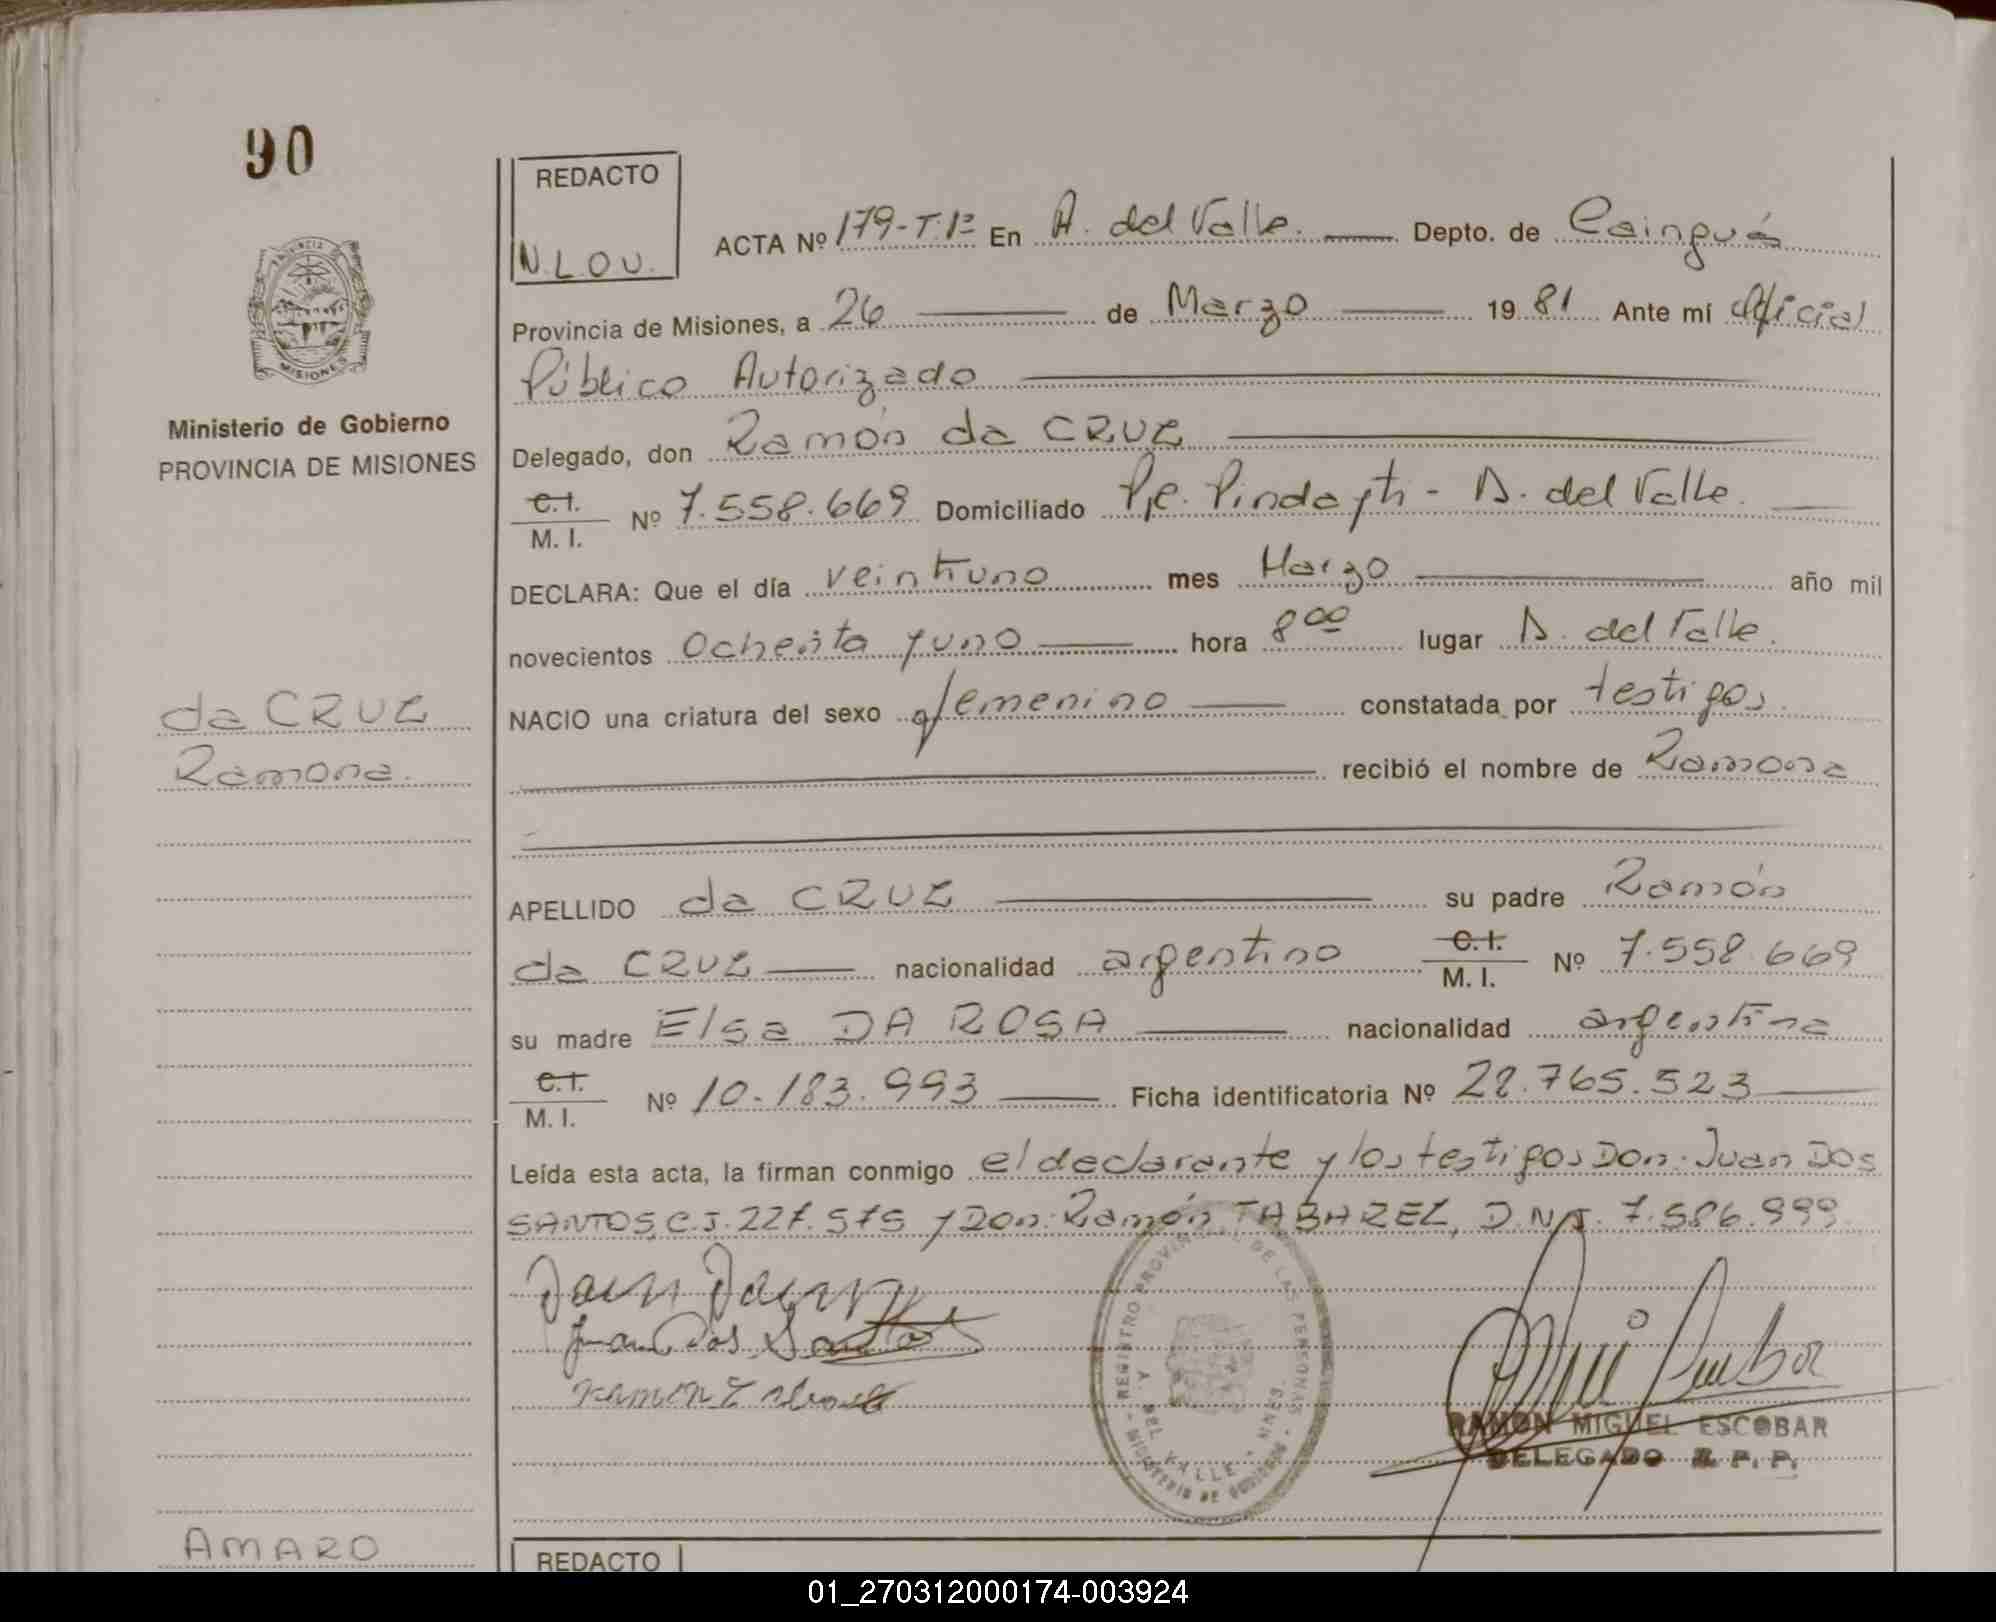 90
REDACTO
N.L.O.U.
ACTA Nº 179-T.1º En A. del Valle. Depto. de Cainguás
Provincia de Misiones, a 26 de Marzo 1981 Ante mí Oficial
Público Autorizado
Delegado, don Ramón da CRUZ
C.I. M. I. Nº 7.558.669 Domiciliado Pje. Pindayti - A. del Valle.
DECLARA: Que el día veintiuno mes Marzo año mil
novecientos ochenta y uno hora 8 00 lugar A. del Valle.
NACIO una criatura del sexo femenino constatada por testigos.
recibió el nombre de Ramona
APELLIDO da CRUZ su padre Ramón
da CRUZ nacionalidad argentino C.I. M. I. Nº 7.558.669
su madre Elsa DA ROSA nacionalidad argentina
C.I. M. I. Nº 10.183.993 Ficha identificatoria Nº 28.765.523
Leída esta acta, la firman conmigo el declarante y los testigos Don: Juan DOS
SANTOS, C.I. 227.575 y Don: Ramón TABAREZ, D.N.I. 7.586.999.
Juan Dos Santos
REGISTRO PROVINCIAL DE LAS PERSONAS
A. DEL VALLE - MNES.
MINISTERIO DE GOBIERNO
RAMON MIGUEL ESCOBAR
DELEGADO R. P. P.
PROVINCIA
MISIONES
Ministerio de Gobierno
PROVINCIA DE MISIONES
da CRUZ
Ramona.
AMARO
REDACTO
01_270312000174-003924